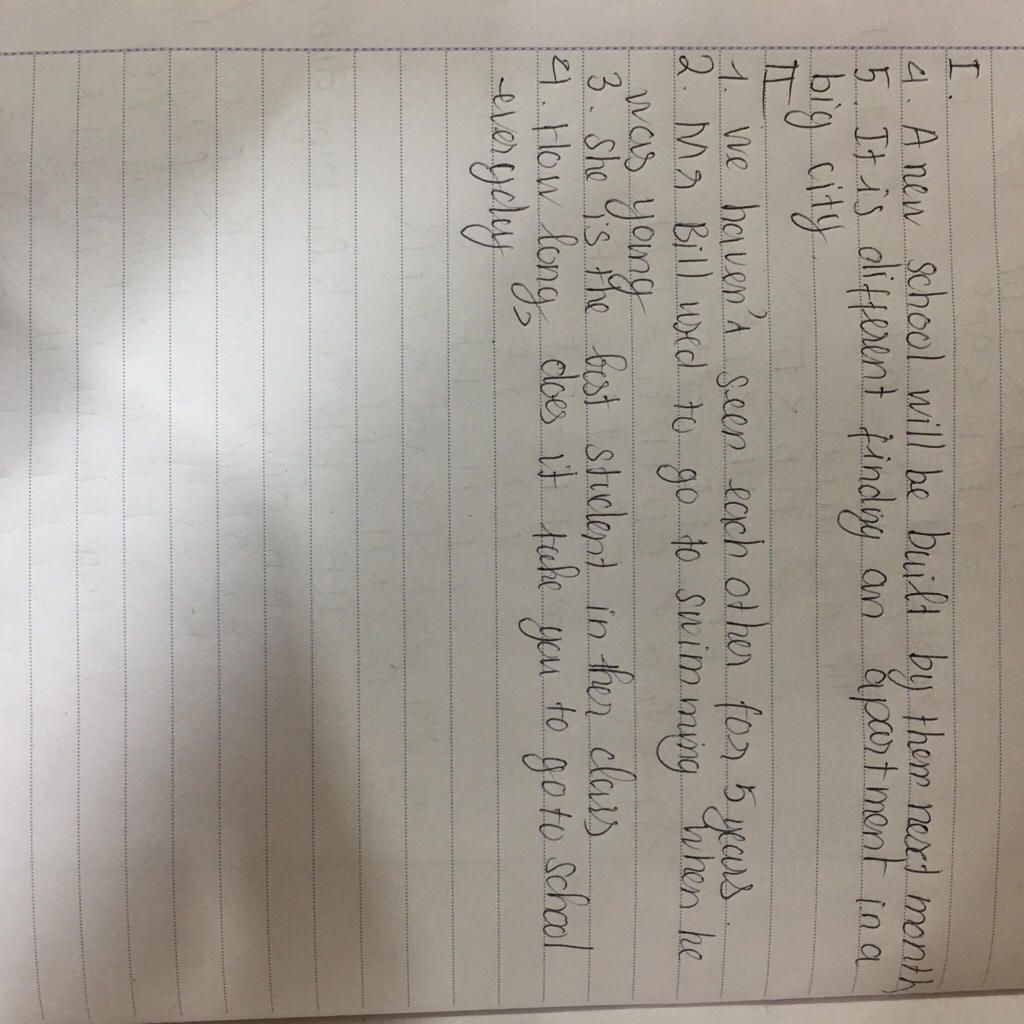 I.
4. A new school will be built by them next month
5. It is different finding an apartment in a
big city
II
1. We haven't seen each other for 5 years.
2. Mr Bill used to go to swimming when he
was young
3. She is the best student in ther class
4. How long, does it take you to go to school
everyday